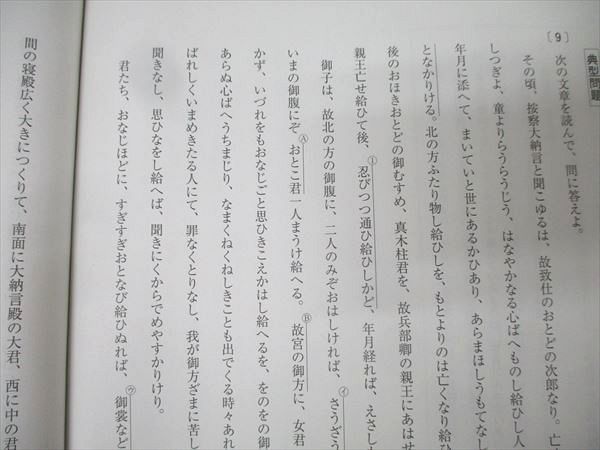 典型問題
〔9〕
次の文章を読んで、問に答えよ。
その頃、按察大納言と聞こゆるは、故致仕のおとどの次郎なり。亡
しつぎよ、童よりらうらうじう、はなやかなる心ばへものし給ひし人
年月に添へて、まいていと世にあるかひあり、あらまほしうもてなし
となかりける。北の方ふたり物し給ひしを、もとよりのは亡くなり給ひ
後のおほきおとどの御むすめ、真木柱君を、故兵部卿の親王にあはせ
親王亡せ給ひて後、①忍びつつ通ひ給ひしかど、年月経れば、えさしも
御子は、故北の方の御腹に、二人のみぞおはしければ、㋑さうざう
いまの御腹にぞ、Ⓐおとこ君一人まうけ給へる。Ⓑ故宮の御方に、女君
かず、いづれをもおなじごと思ひきこえかはし給へるを、をのをの御
あらぬ心ばへうちまじり、なまくねくねしきことも出でくる時々あれ
ばれしくいまめきたる人にて、罪なくとりなし、我が御方ざまに苦し
聞きなし、思ひなをし給へば、聞きにくからでめやすかりけり。
君たち、おなじほどに、すぎすぎおとなび給ひぬれば、㋒御裳など
間の寝殿広く大きにつくりて、南面に大納言殿の大君、西に中の君